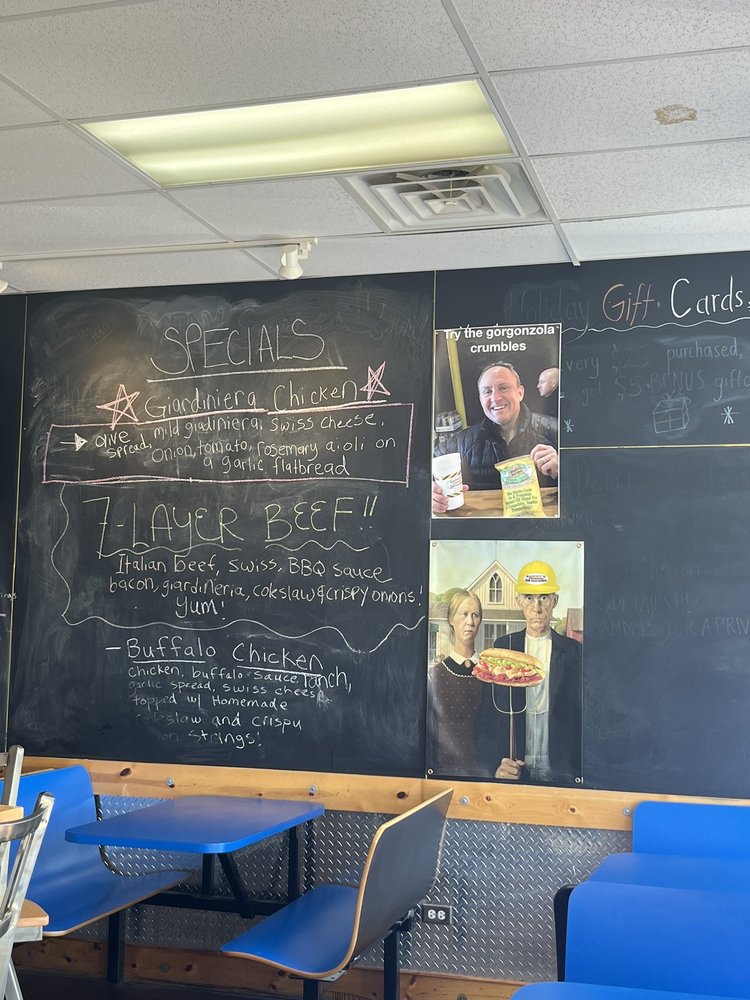 SPECIALS
Giardiniera Chicken
olive spread, mild giadiniera, swiss cheese,
onion, tomato, rosemary aioli on
a garlic flatbread
7-LAYER BEEF!!
Italian beef, swiss, BBQ sauce
bacon, giardineria, coleslaw & crispy onions!
Yum!
- Buffalo Chicken
chicken, buffalo sauce, ranch,
garlic spread, swiss cheese
topped w/ Homemade
coleslaw and crispy
strings!
Try the gorgonzola
crumbles
Holiday Gift Cards
purchased,
BONUS gift